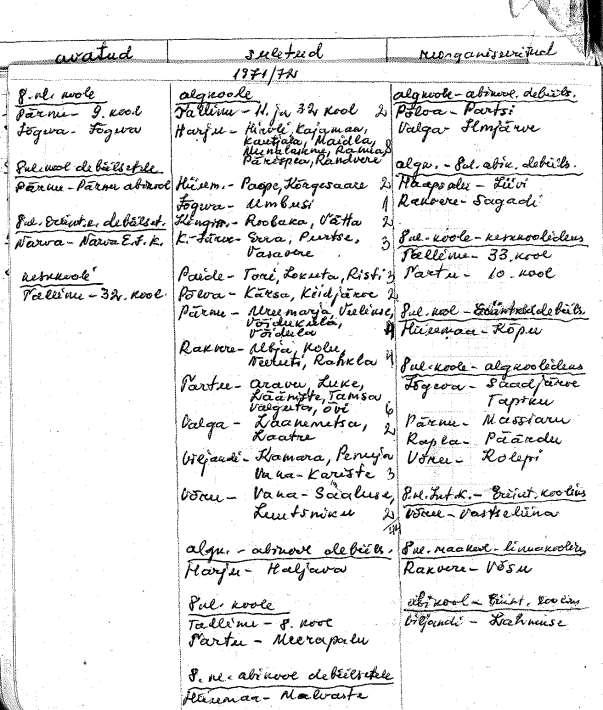 avatud
suletud
reorganiseeritud
1971/72
8. kl. koole
Pärnu - 9. kool
Jõgeva - Jõgeva
8 kl. kool debiilsetele
Pärnu - Pärnu abikool
8 kl. debiilset.
Narva - Narva E.I.K.
keskkoole
Tallinn - 32. kool
algkoole
Tallinn - 11. ja 32 kool 2
Harju - Kajamaa,
Maidla,
8
Pärispea, Randvere
Hiium. - Paope, Kõrgessaare 2
Jõgeva - Umbusi 1
Kingiss. - Roobaka, Vätta 2
K.-Järve - Erra, Purtse, 3
Vasavere
Paide - Tori, Lokuta, Risti 3
Põlva - Kärsa, Kiidjärve 2
Pärnu - Urumarja,
Võiduküla, 4
Võidula
Rakvere - Ubja, Kolu, 4
Neeruti, Rahkla
Tartu - Aravu, Luke,
Väänikte, Tamsa
Valguta, Õvi 6
Valga - Laanemetsa, 2
Laatre
Viljandi - Kamara, Penuja
Vana-Kariste 3
Võru - Vana-Saaluse,
Luutsniku 2
algk. - abikool debiils.
Harju - Haljava
8 kl. koole
Tallinn - 8. kool
Tartu - Meerapalu
8. kl. abikool debiilsetele
Hiiumaa - Malvaste
algkoole - abikool. debiils.
Põlva - Partsi
Valga - Ilmjärve
algk. - 8 kl. abik. debiils.
Haapsalu - Liivi
Rakvere - Sagadi
8 kl. koole - keskkoolideks
Tallinn - 33. kool
Tartu - 10. kool
8 kl. kool - debiils.
Hiiumaa - Kõpu
8 kl. koole - algkoolideks
Jõgeva - Saadjärve
Tapiku
Pärnu - Massiaru
Rapla - Päärdu
Võru - Kolepi
8 kl. Int. K. - Eriint. kooliks
Võru - Vastseliina
8 kl. maakool - linnakooliks
Rakvere - Võsu
Abikool - Eriint. kooliks
Viljandi - Lahmuse